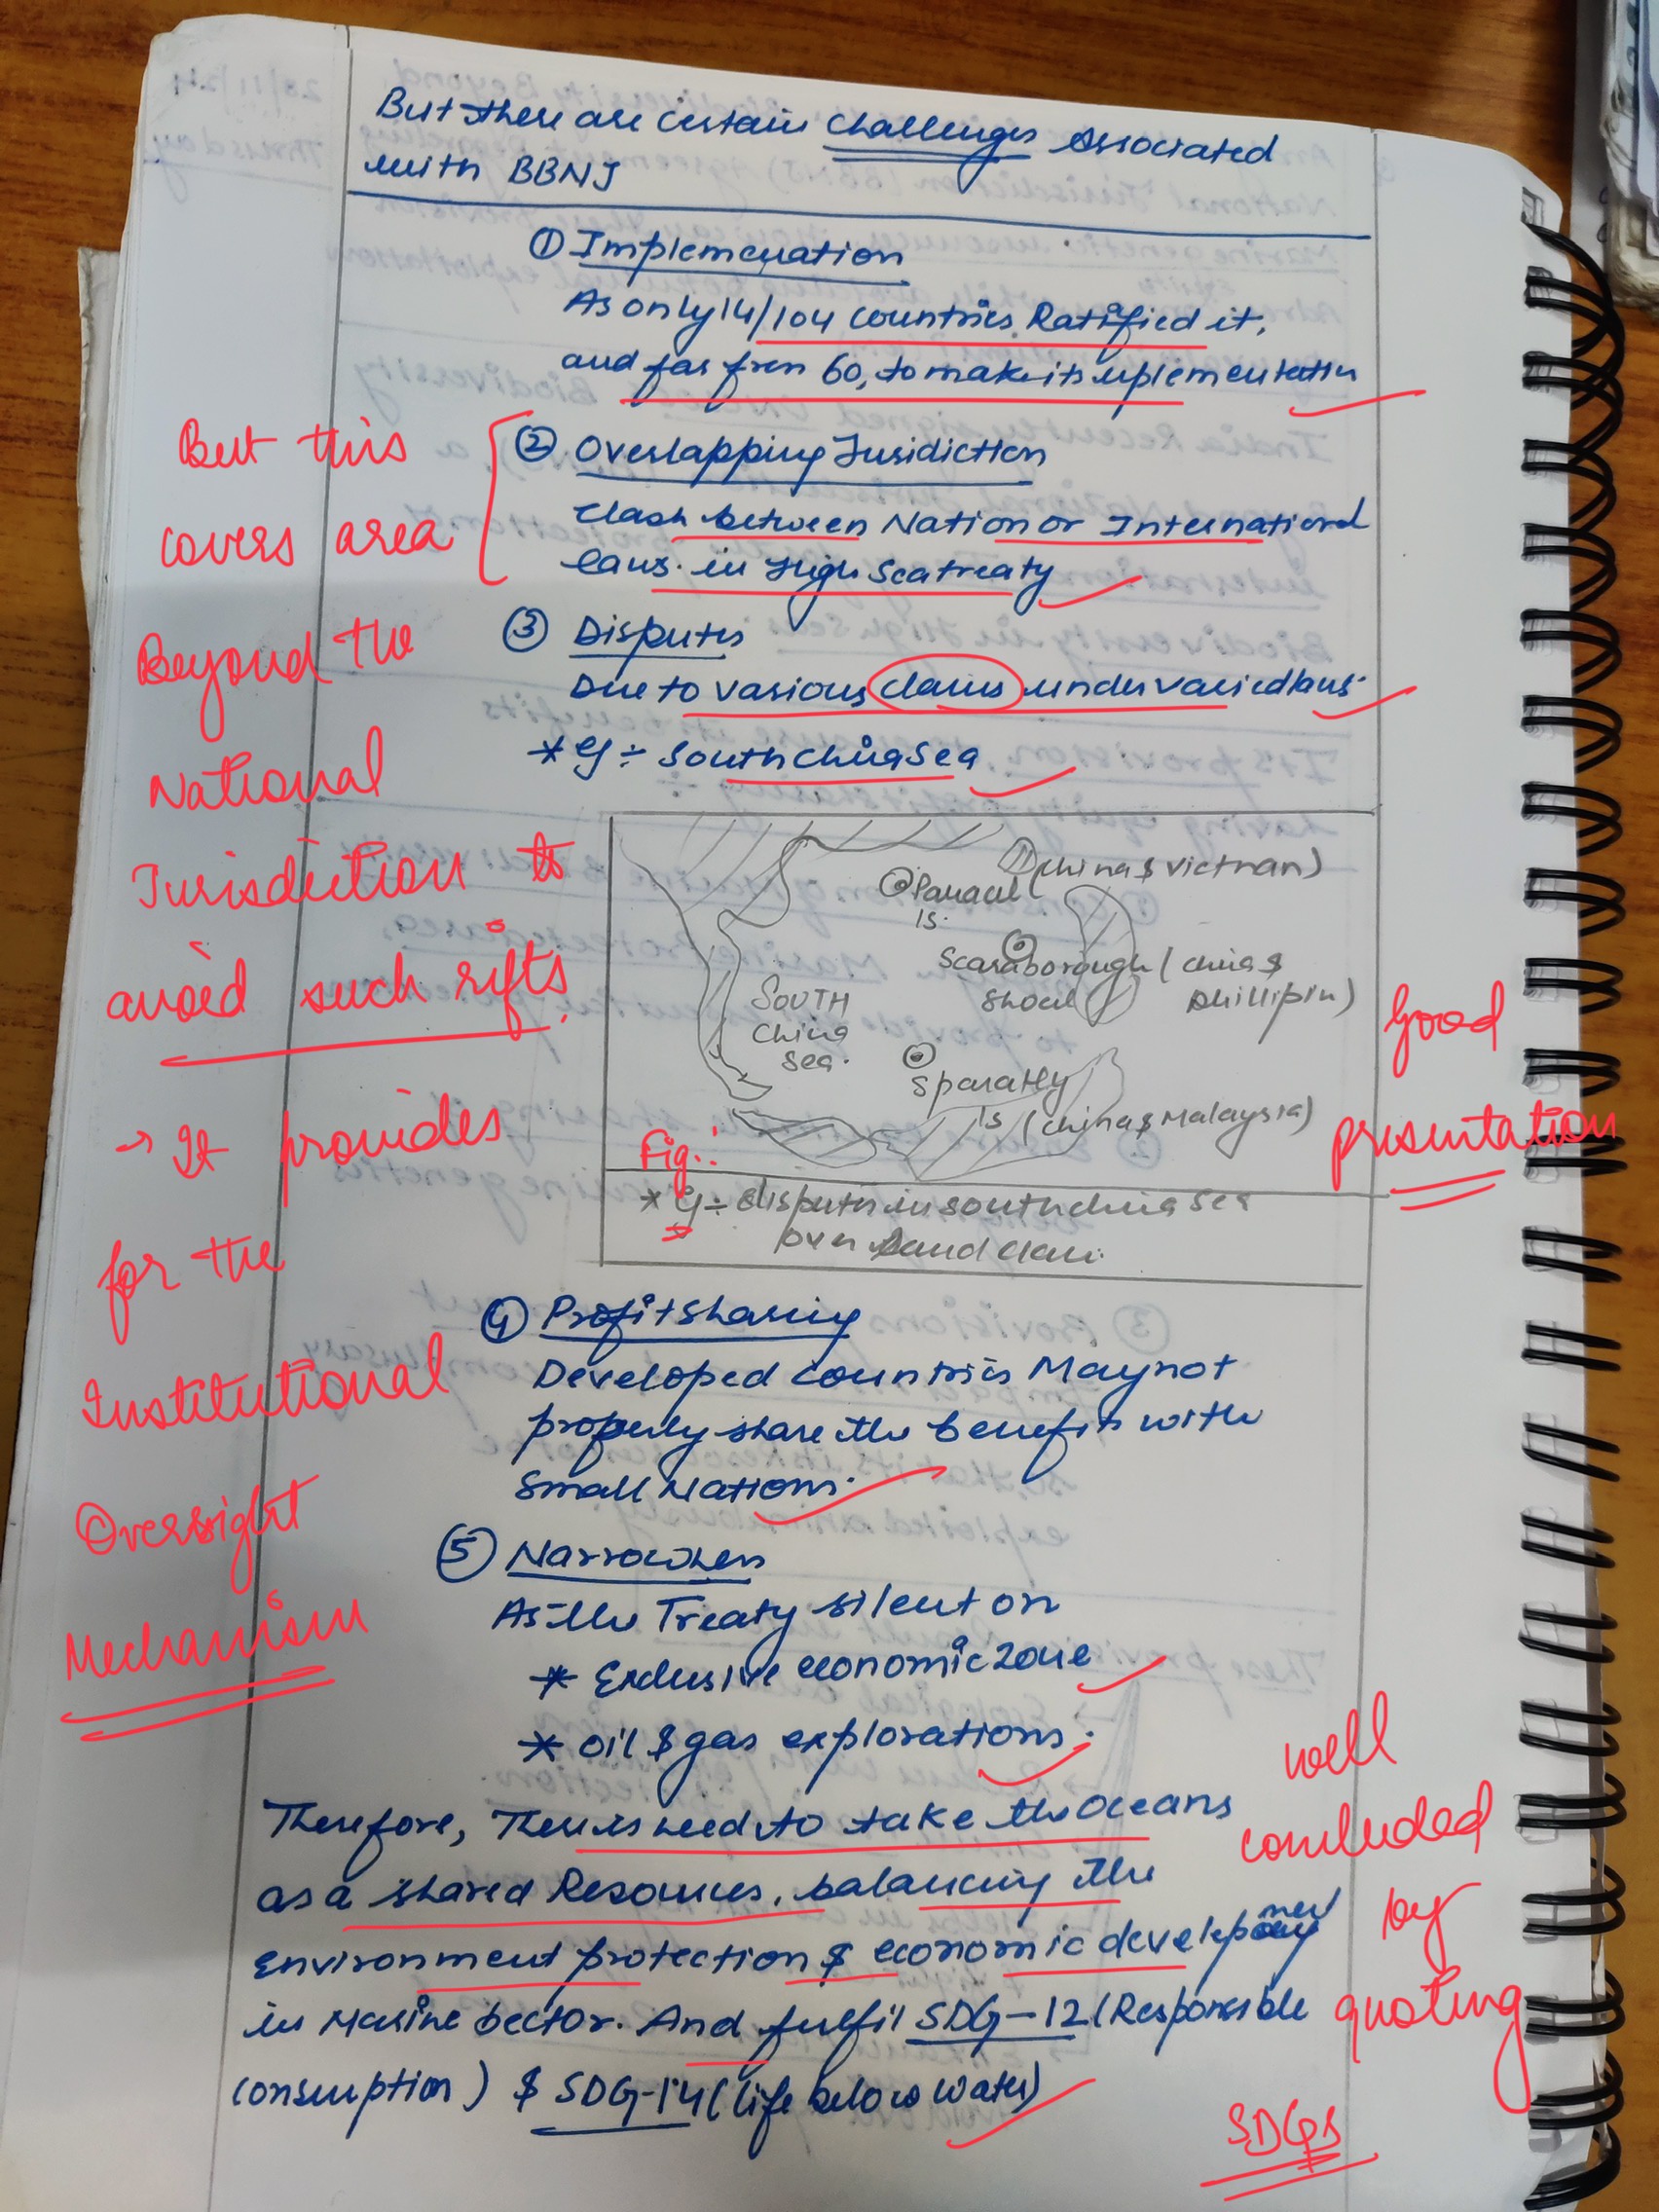 But there are certain challenges Associated
with BBNJ
① Implemenation
As only 14/104 countries Ratified it,
and far from 60, to make its implementation
② Overlapping Jurisdiction
clash between Nation or International
laws. in High Sea treaty
③ Disputes
Due to various claims under varied laws.
* eg ÷ South China Sea
Paracel (China & Vietnam)
Is.
Scaraborough (China &
Shoal Phillipin)
SOUTH
China
Sea.
Sparatly
Is (China & Malaysia)
Fig.:
* eg ÷ disputes in south china sea
over Land claim.
④ Profit Sharing
Developed countries May not
properly share the benefits with
Small Nations.
⑤ Narrowness
As the Treaty silent on
* Exclusive economic zone
* oil & gas explorations.
Therefore, There is need to take the oceans
as a shared Resources, balancing the
Environment protection & economic development
in Marine Sector. And fulfil SDG-12 (Responsible
consumption) & SDG-14 (life below water)
But this
covers area
Beyond the
National
Jurisdiction to
avoid such rifts.
→ It provides
for the
Institutional
Oversight
Mechanism
Good
presentation
well
concluded
by
quoting
SDGs